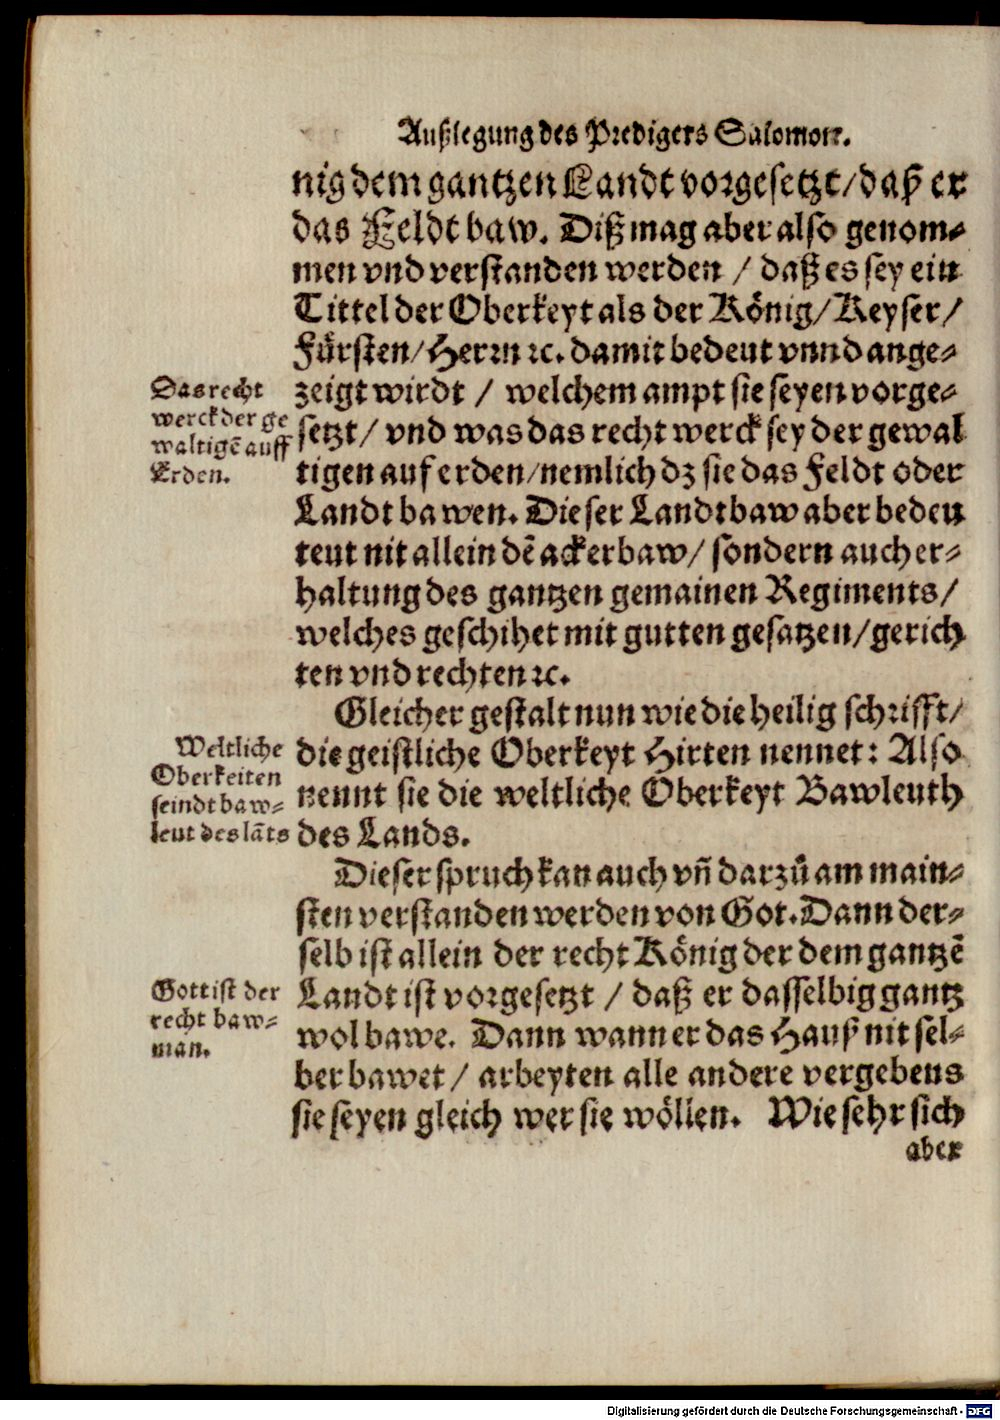 Außlegung des Predigers Salomon.
nig dem gantzen Landt vorgesetzt/daß er
das Feldt baw. Diß mag aber also genom-
men vnd verstanden werden / daß es sey ein
Tittel der Oberkeyt als der König/Keyser/
Fürsten/Herrn ꝛc. damit bedeut vnnd ange-
zeigt wirdt / welchem ampt sie seyen vorge-
setzt/ vnd was das recht werck sey der gewal
tigen auf erden/nemlich dz sie das Feldt oder
Landt bawen. Dieser Landtbaw aber bedeu
teut nit allein dẽ ackerbaw/ sondern auch er-
haltung des gantzen gemainen Regiments/
welches geschihet mit gutten gesatzen/gerich
ten vnd rechten ꝛc.
Das recht
werck der ge
waltigẽ auff
Erden.
Gleicher gestalt nun wie die heilig schrifft/
die geistliche Oberkeyt Hirten nennet: Also
nennt sie die weltliche Oberkeyt Bawleuth
des Lands.
Weltliche
Oberkeiten
seindt baw-
leut des lãts
Dieser spruch kan auch vñ darzů am main-
sten verstanden werden von Got. Dann der-
selb ist allein der recht König der dem gantzẽ
Landt ist vorgesetzt / daß er dasselbig gantz
wol bawe. Dann wann er das Hauß nit sel-
ber bawet / arbeyten alle andere vergebens
sie seyen gleich wer sie wöllen. Wie sehr sich
Gott ist der
recht baw-
man.
aber
Digitalisierung gefördert durch die Deutsche Forschungsgemeinschaft - DFG